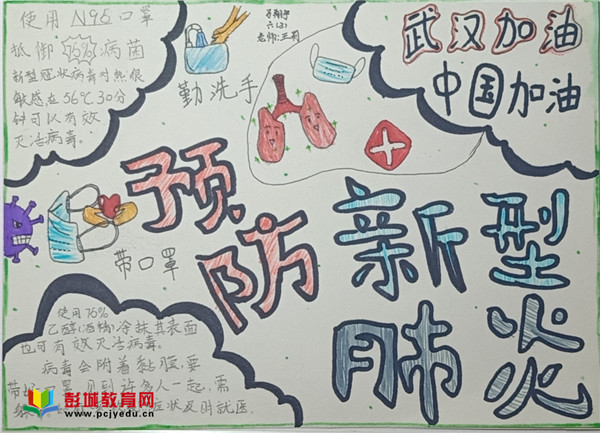 使用N95口罩
抵御95%病菌
新型冠状病毒对热很
敏感在56℃30分
钟可以有效
灭活病毒。
勤洗手
六(3)
老师:王莉
武汉加油
中国加油
预防
新型
肺炎
带口罩
使用75%
乙醇(酒精)涂抹其表面
也可有效灭活病毒。
病毒会附着黏膜,要
带好口罩,见到许多人一起,需
症状及时就医.
彭城教育网
www.pcjyedu.cn